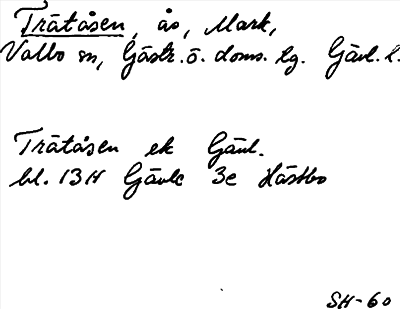 Trätåsen, ås, Mark,
Valbo sn, Gästr. ö. doms. lg. Gävl. l.
Trätåsen ek Gävl.
bl. 13H Gävle 3e Hästbo
SH-60